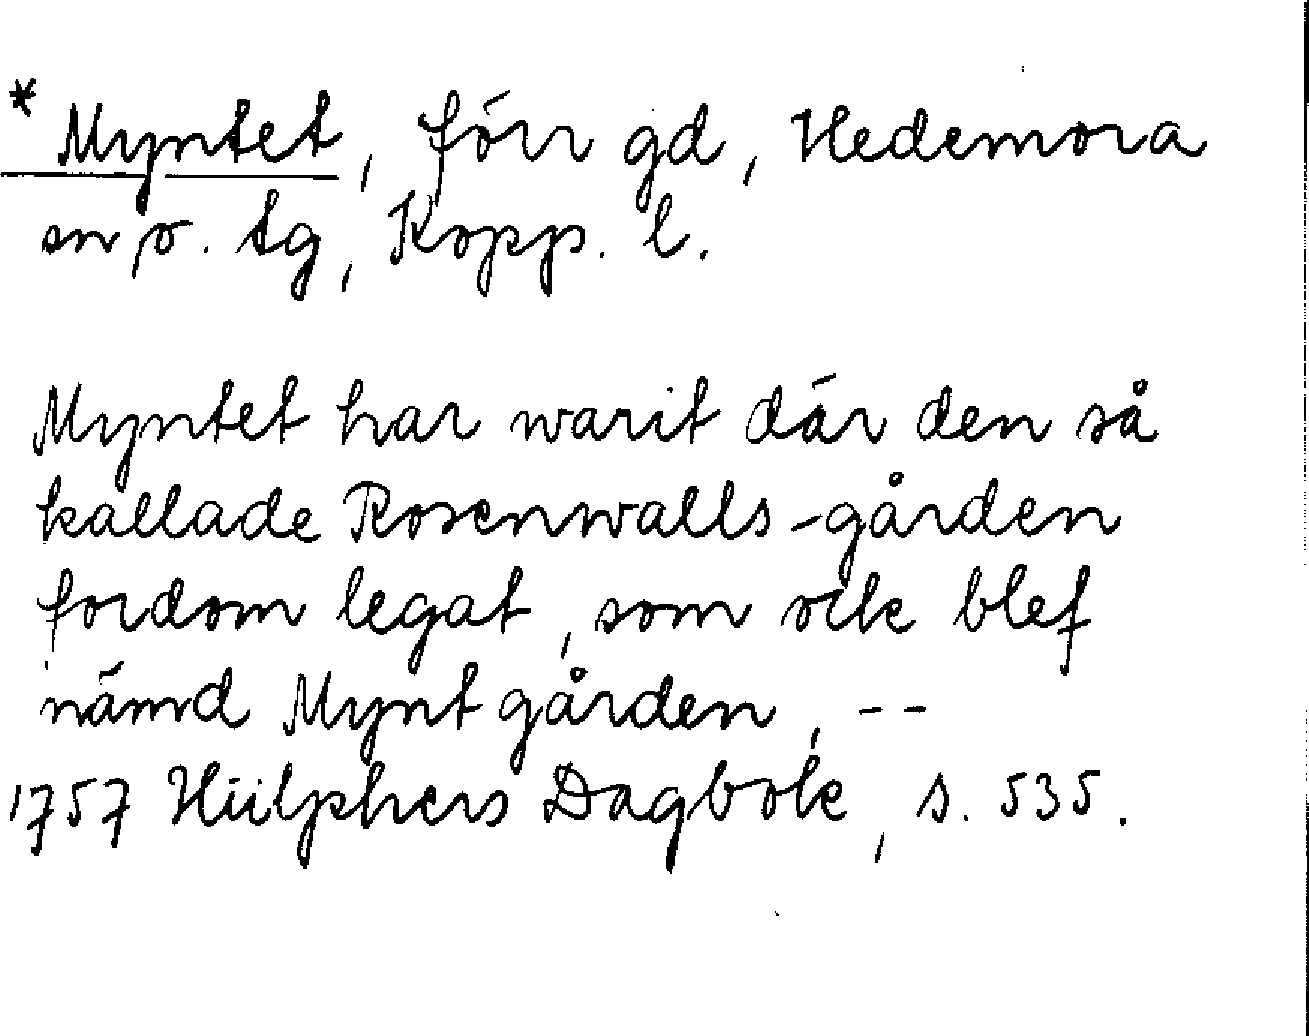 * Myntet, förr gd, Hedemora
sn o. tg, Kopp. l.
Myntet har warit där den så
kallade Rosenwalls-gården
fordom legat, som ock blef
nämd Myntgården, --
1757 Hülphers Dagbok, s. 535.